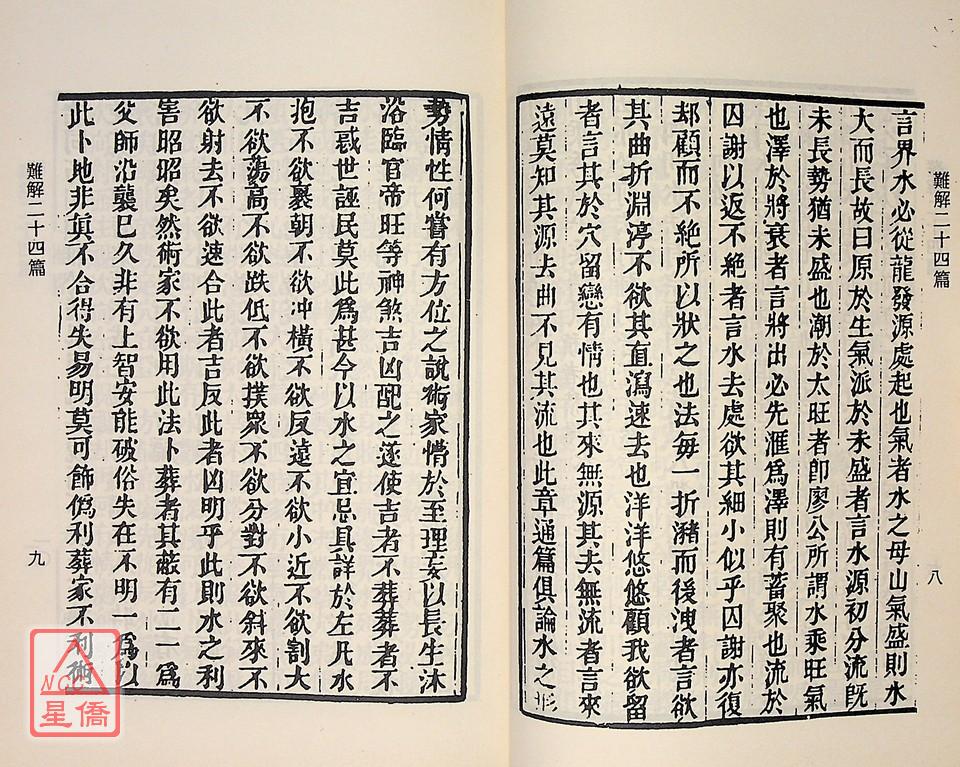 難解二十四篇
言界水必從龍發源處起也氣者水之母山氣盛則水
大而長故曰原於生氣派於未盛者言水源初分流旣
未長勢猶未盛也潮於太旺者卽廖公所謂水乘旺氣
也澤於將衰者言將出必先滙爲澤則有蓄聚也流於
囚謝以返不絕者言水去處欲其細小似乎囚謝亦復
却顧而不絕所以狀之也法每一折瀦而後洩者言欲
其曲折淵渟不欲其直瀉速去也洋洋悠悠顧我欲留
者言其於穴留戀有情也其來無源其去無流者言來
遠莫知其源去曲不見其流也此章通篇俱論水之形
八
勢情性何嘗有方位之說術家惰於至理妄以長生沐
浴臨官帝旺等神煞吉凶配之遂使吉者不葬葬者不
吉惑世誣民莫此爲甚今以水之宜忌具詳於左凡水
抱不欲裹朝不欲冲橫不欲反遠不欲小近不欲割大
不欲蕩高不欲跌低不欲撲衆不欲分對不欲斜來不
欲射去不欲速合此者吉反此者凶明乎此則水之利
害昭昭矣然術家不欲用此法卜葬者其蔽有二一爲
父師沿襲已久非有上智安能破俗失在不明一爲以
此卜地非眞不合得失易明莫可飾僞利葬家不利術
難解二十四篇
九
NCC
星僑